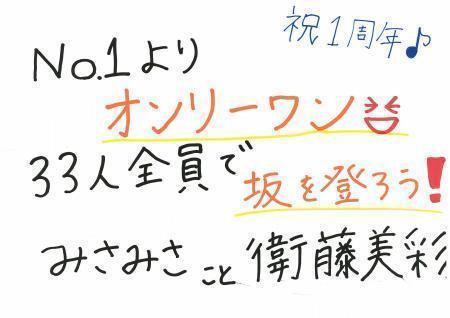 祝1周年♪
No.1より
オンリーワン
33人全員で
坂を登ろう!
みさみさこと衛藤美彩